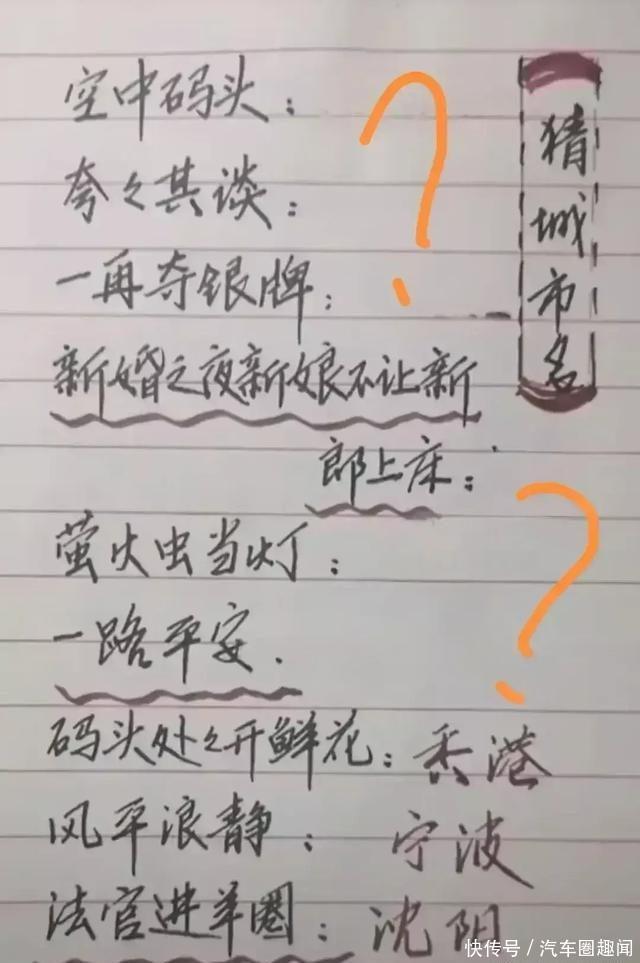 空中码头：
夸々其谈：
一再夺银牌：
新婚之夜新娘不让新
郎上床：
萤火虫当灯：
一路平安.
码头处々开鲜花：香港
风平浪静：宁波
法官进羊圈：沈阴
猜城市名
?
?
快传号／汽车圈趣闻